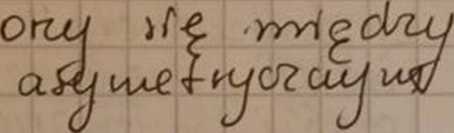 ory się między
asymetrycznym